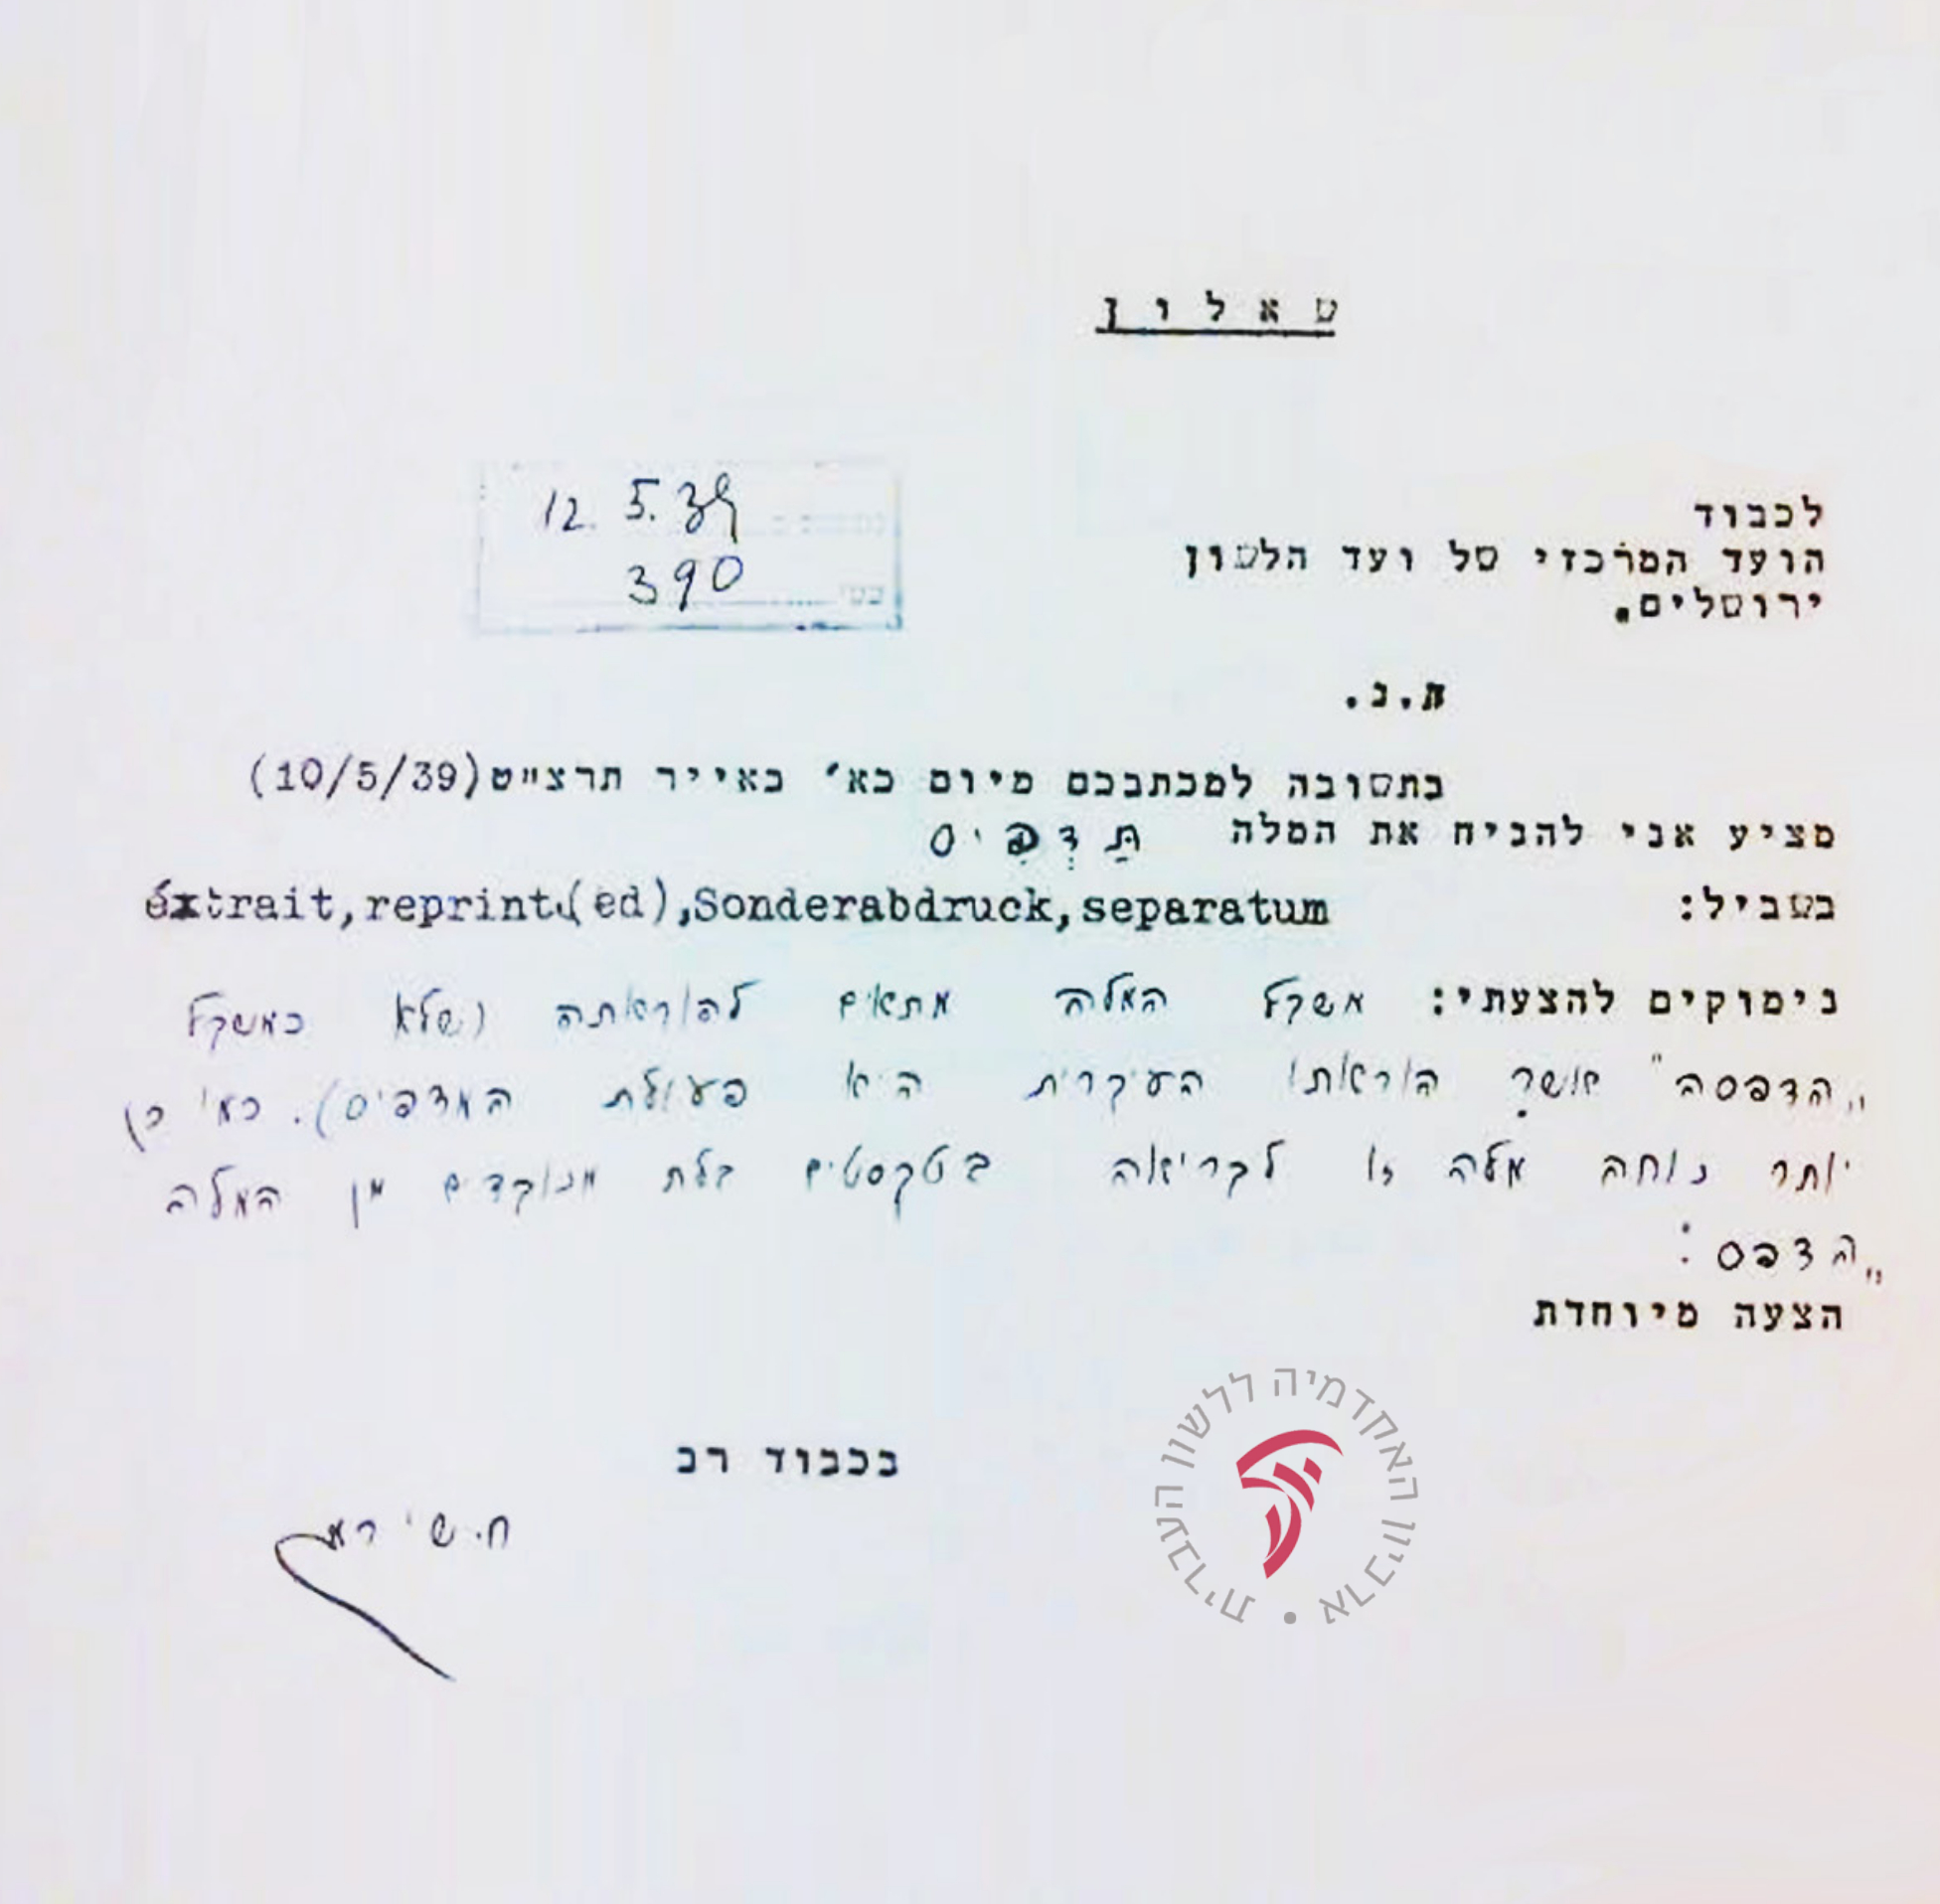 שאלון
12.5.39
390
לכבוד
הועד המרכזי של ועד הלשון
ירושלים.
א.נ.
בתשובה למכתבכם מיום כא׳ באייר תרצ״ט (10/5/39)
מציע אני להניח את המלה תַּדְפִּיס
בשביל: extrait, reprint(ed), Sonderabdruck, separatum
נימוקים להצעתי: משקל המלה מתאים להוראתה (שלא כמשקל
„הדפסה" אשר הוראתו העיקרית היא פעולת המדפיס). כמו כן
יותר נוחה מלה זו לקריאה בטקסטים בלת מנוקדים מן המלה
„הדפס:
הצעה מיוחדת
בכבוד רב
ח. שירמן
האקדמיה ללשון העברית • ארכיון